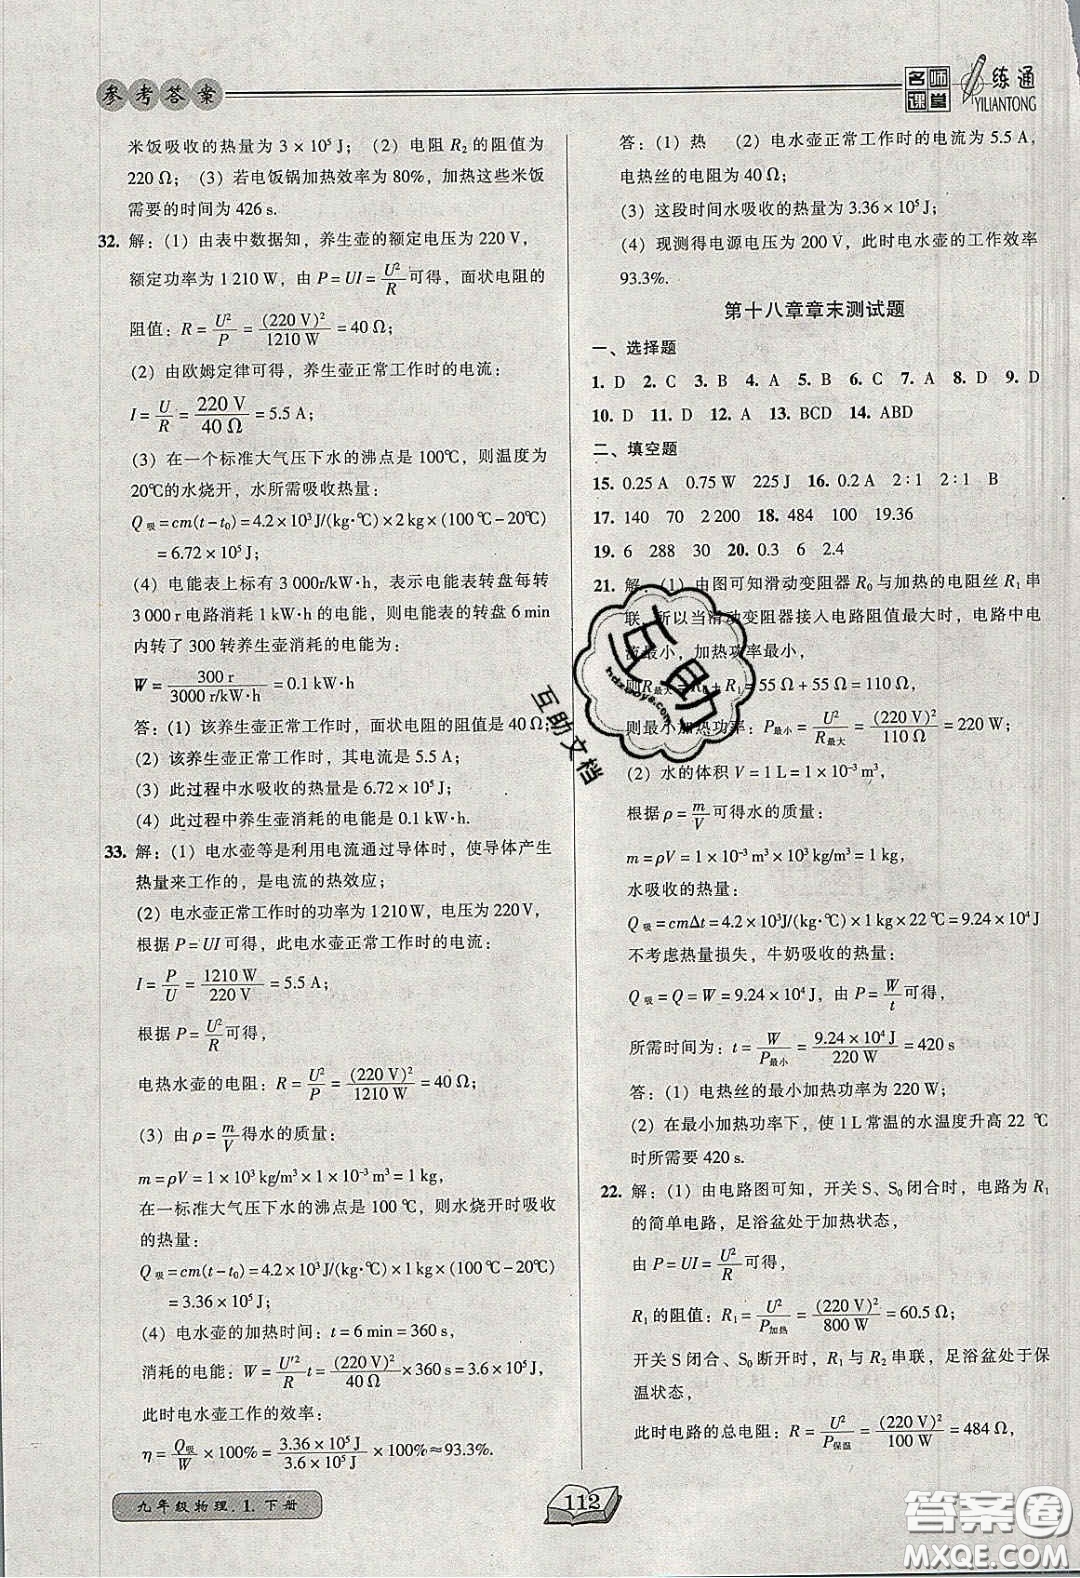 参考答案
名师课堂
练通
YILIANTONG
米饭吸收的热量为 3×10⁵ J；（2）电阻 R₂ 的阻值为
220 Ω；（3）若电饭锅加热效率为 80%，加热这些米饭
需要的时间为 426 s.
32. 解：（1）由表中数据知，养生壶的额定电压为 220 V，
额定功率为 1 210 W，由 P＝UI＝U²/R 可得，面状电阻的
阻值：R＝U²/P＝(220 V)²/1210 W＝40 Ω；
（2）由欧姆定律可得，养生壶正常工作时的电流：
I＝U/R＝220 V/40 Ω＝5.5 A；
（3）在一个标准大气压下水的沸点是 100℃，则温度为
20℃的水烧开，水所需吸收热量：
Q吸＝cm(t－t₀)＝4.2×10³ J/(kg·℃)×2 kg×(100 ℃－20℃)
＝6.72×10⁵ J；
（4）电能表上标有 3 000r/kW·h，表示电能表转盘每转
3 000 r 电路消耗 1 kW·h 的电能，则电能表的转盘 6 min
内转了 300 转养生壶消耗的电能为：
W＝300 r/3000 r/kW·h＝0.1 kW·h
答：（1）该养生壶正常工作时，面状电阻的阻值是 40 Ω；
（2）该养生壶正常工作时，其电流是 5.5 A；
（3）此过程中水吸收的热量是 6.72×10⁵ J；
（4）此过程中养生壶消耗的电能是 0.1 kW·h.
33. 解：（1）电水壶等是利用电流通过导体时，使导体产生
热量来工作的，是电流的热效应；
（2）电水壶正常工作时的功率为 1 210 W，电压为 220 V，
根据 P＝UI 可得，此电水壶正常工作时的电流：
I＝P/U＝1210 W/220 V＝5.5 A；
根据 P＝U²/R 可得，
电热水壶的电阻：R＝U²/P＝(220 V)²/1210 W＝40 Ω；
（3）由 ρ＝m/V 得水的质量：
m＝ρV＝1×10³ kg/m³×1×10⁻³ m³＝1 kg，
在一个标准大气压下水的沸点是 100 ℃，则水烧开时吸收
的热量：
Q吸＝cm(t－t₀)＝4.2×10³ J/(kg·℃)×1 kg×(100 ℃－20 ℃)
＝3.36×10⁵ J；
（4）电水壶的加热时间：t＝6 min＝360 s，
消耗的电能：W＝U′²/R t＝(220 V)²/40 Ω×360 s＝3.6×10⁵ J；
此时电水壶工作的效率：
η＝Q吸/W×100%＝3.36×10⁵ J/3.6×10⁵ J×100%≈93.3%.
答：（1）热 （2）电水壶正常工作时的电流为 5.5 A，
电热丝的电阻为 40 Ω；
（3）这段时间水吸收的热量为 3.36×10⁵ J；
（4）现测得电源电压为 200 V，此时电水壶的工作效率
93.3%.
第十八章章末测试题
一、选择题
1. D 2. C 3. B 4. A 5. B 6. C 7. A 8. D 9. D
10. D 11. D 12. A 13. BCD 14. ABD
二、填空题
15. 0.25 A 0.75 W 225 J 16. 0.2 A 2∶1 2∶1 B
17. 140 70 2 200 18. 484 100 19.36
19. 6 288 30 20. 0.3 6 2.4
21. 解：（1）由图可知滑动变阻器 R₀ 与加热的电阻丝 R₁ 串
联，所以当滑动变阻器接入电路阻值最大时，电路中电
流最小，加热功率最小，
则R最大＝R₀＋R₁＝55 Ω＋55 Ω＝110 Ω，
则最小加热功率：P最小＝U²/R最大＝(220 V)²/110 Ω＝220 W；
（2）水的体积 V＝1 L＝1×10⁻³ m³，
根据 ρ＝m/V 可得水的质量：
m＝ρV＝1×10⁻³ m³×1×10³ kg/m³＝1 kg，
水吸收的热量：
Q吸＝cmΔt＝4.2×10³J/(kg·℃)×1 kg×22 ℃＝9.24×10⁴ J
不考虑热量损失，牛奶吸收的热量：
Q吸＝Q＝W＝9.24×10⁴ J，由 P＝W/t 可得，
所需时间为：t＝W/P最小＝9.24×10⁴ J/220 W＝420 s
答：（1）电热丝的最小加热功率为 220 W；
（2）在最小加热功率下，使 1 L 常温的水温度升高 22 ℃
时所需要 420 s.
22. 解：（1）由电路图可知，开关 S、S₀ 闭合时，电路为 R₁
的简单电路，足浴盆处于加热状态，
由 P＝UI＝U²/R 可得，
R₁ 的阻值：R₁＝U²/P加热＝(220 V)²/800 W＝60.5 Ω；
开关 S 闭合、S₀ 断开时，R₁ 与 R₂ 串联，足浴盆处于保
温状态，
此时电路的总电阻：R＝U²/P保温＝(220 V)²/100 W＝484 Ω，
互助
hdzuoye.com
互助文档
九年级物理.1.下册
112
答案圈
MXQE.COM